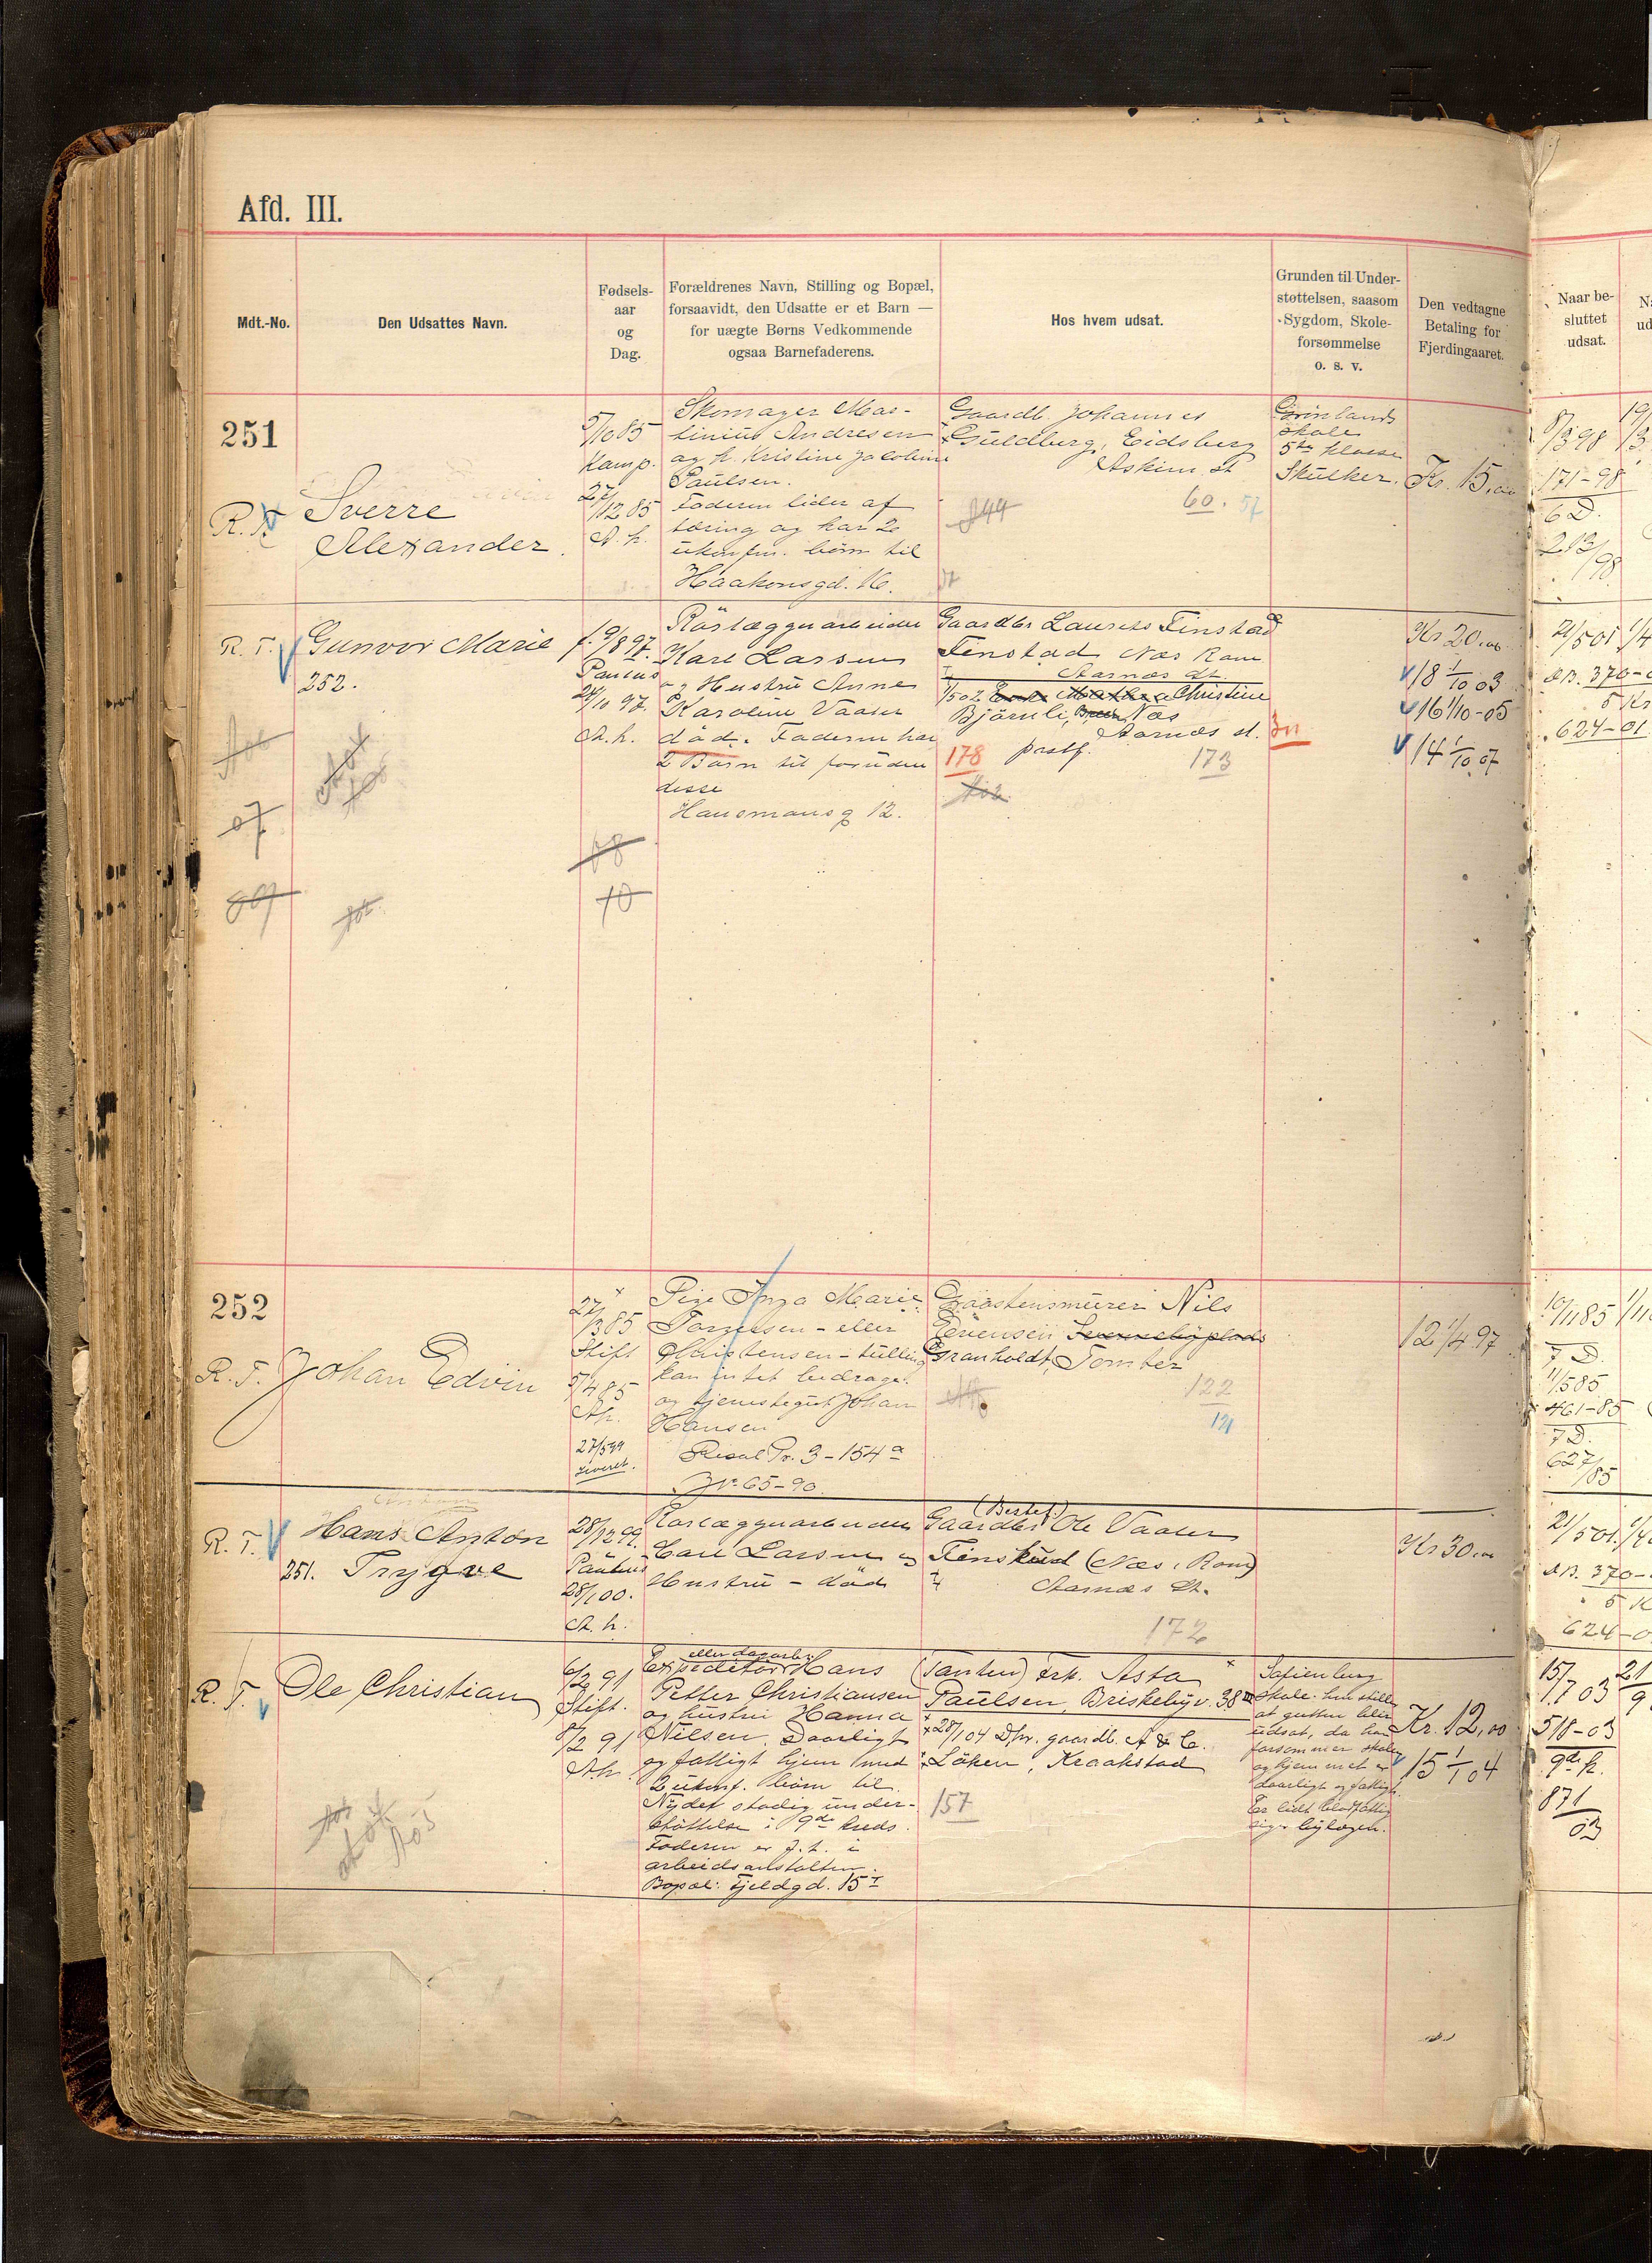 Afd. III.
Mdt.-No.
Den Udsattes Navn.
Fødsels-
aar
og
Dag.
Forældrenes Navn, Stilling og Bopæl,
forsaavidt, den Udsatte er et Barn —
for uægte Børns Vedkommende
ogsaa Barnefaderens.
Hos hvem udsat.
Grunden til Under-
støttelsen, saasom
Sygdom, Skole-
forsømmelse
o. s. v.
Den vedtagne
Betaling for
Fjerdingaaret.
Naar be-
sluttet
udsat.
251
R. T.
Sverre
Alexander.
5/10 85
Kamp.
27/12 85
A. h.
Skomager Mar-
tinius Andresen
og h. Kristine Jacobine
Paulsen.
Faderen lider af
tæring og har 2
ukonfm. børn til
Haakonsgd. 16.
Gaardb. Johannes
Guldberg, Eidsberg
Askim st
60. 57
Grønlands
skole
5te klasse
Skulker.
Kr. 15,00
8/3 98
171-98
6 D.
213/98
R. T. Gunvor Marie
252.
f. 9/8 97.
Paulus
24/10 97.
A. h.
Rørlæggerarbeider
Karl Larsen
og Hustru Anne
Karoline Vaaler
død. Faderen har
2 Børn til foruden
disse
Hausmansg 12.
Gaardbr Laurits Finstad
Finstad Næs Rom
Aarnæs St.
1/5 02 Christine
Bjørnli, Næs
Aarnæs st.
178 postf. 173
Kr 20,00
18 1/10 03
16 1/10-05
14 1/10 07
21/5 01
AB. 370-0
5 Kr
624-01
07
09
08
10
252
R. T. Johan Edvin
27/3 85
Stift
5/4 85
Ah.
27/5 99
Leveret.
Pige Inga Marie
Torgersen - eller
Christensen - tulling
kan intet bidrage.
og tjenestegut Johan
Hansen
Resol Pr. 3-154a
Jr. 65-90.
Graastensmurer Nils
Evensen
Granholdt, Tomter
122
121
12 1/4 97
10/11 85
7 D.
11/5 85
461-85
7 D.
627/85
R. T. Hans Anton
251. Trygve
28/12 99.
Paulus
28/1 00.
A. h.
Rørlæggerarbeider
Karl Larsen og
Hustru - død
(Bestef)
Gaardbr Ole Vaaler
Finstad (Næs, Rom)
Aarnæs St.
172
Kr 30,00
21/5 01
AB. 370-
5 K
624-0
R. T. Ole Christian
6/2 91
Stift.
8/2 91
Ah.
eller dagarb.
Expeditør Hans
Petter Christiansen
og hustru Hanna
Nilsen. Daarligt
og fattigt hjem med
2 ukonf. børn til.
Nyder stadig under-
støttelse i 9de kreds.
Faderen er f. t. i
arbeidsanstalten.
Bopæl: Fjeldgd. 15 I
(Tanten) Frk. Asta
Paulsen, Briskebyv. 38 III
28/1 04 Dhr. gaardb. A & C.
Løken, Kraakstad
157
Sofienberg
skole. henstiller
at gutten blir
udsat, da han
forsømmer skolen
og hjemmet er
daarligt og fattigt.
Er lidt blodfattig
siger bylægen.
Kr. 12,00
15 1/1 04
15/7 03
518-03
9de k.
871/03